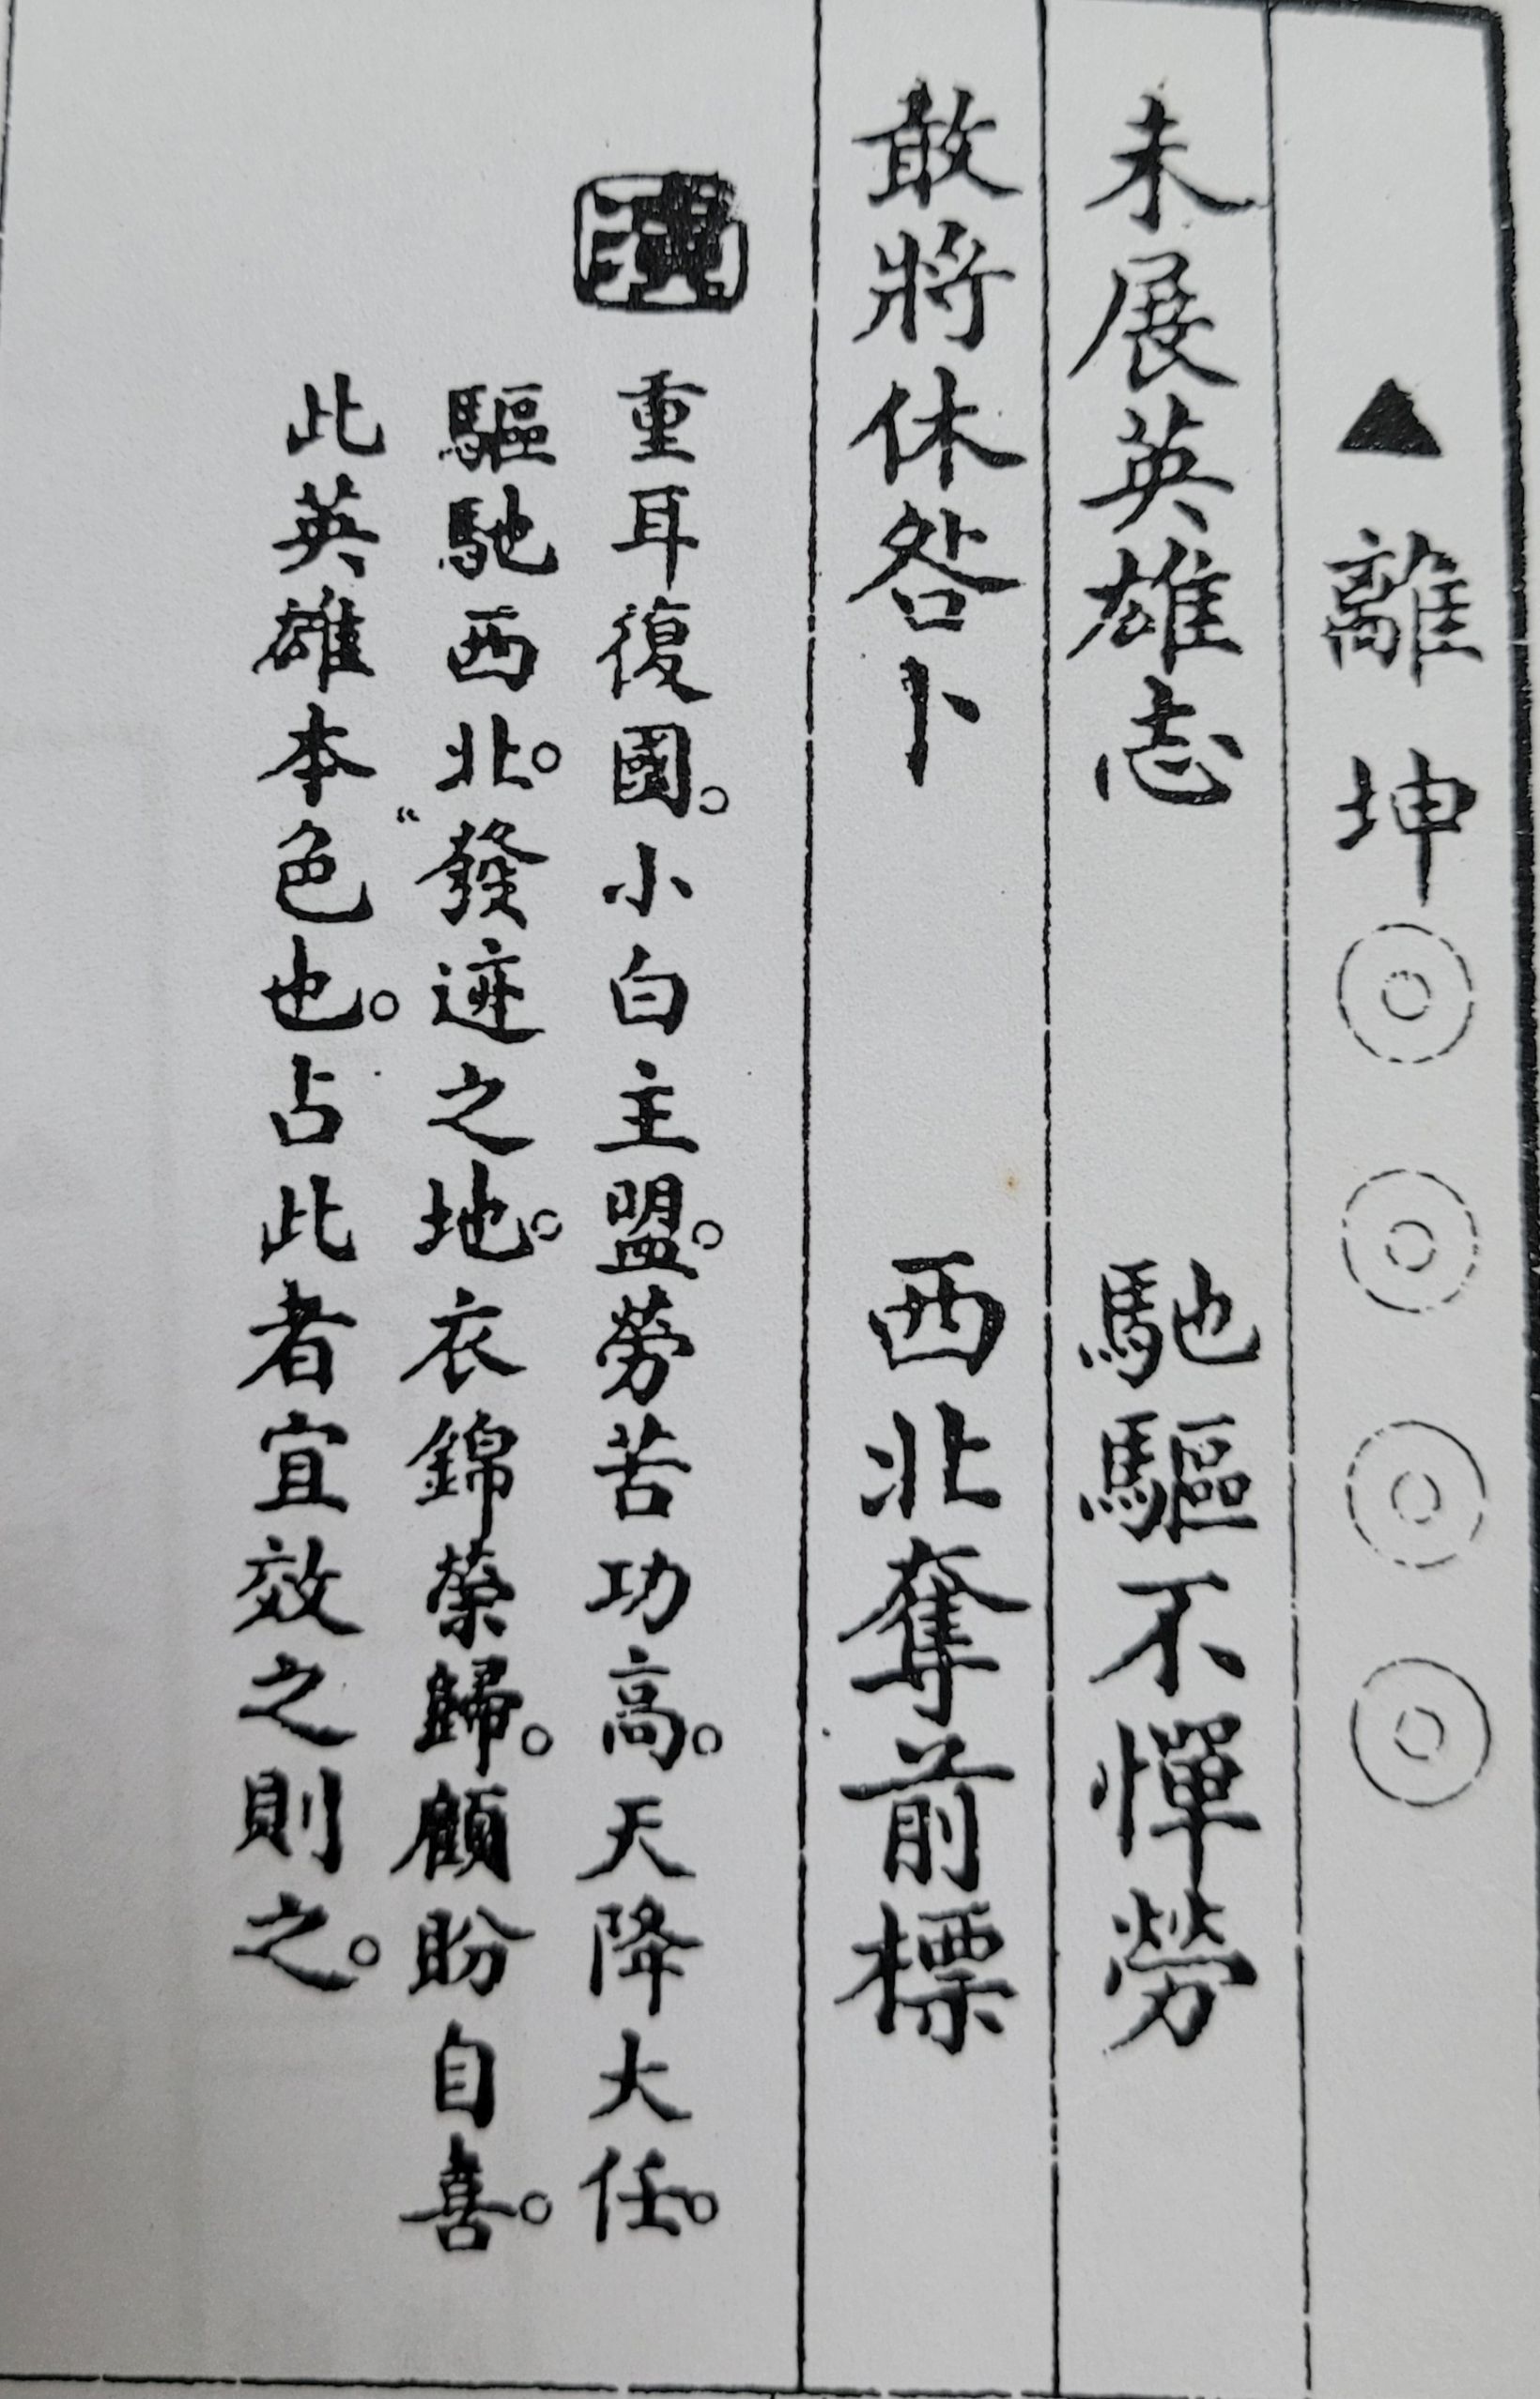 ▲離坤◎◎◎◎
未展英雄志　馳驅不憚勞
敢將休咎卜　西北奪前標
重耳復國。小白主盟。勞苦功高。天降大任。
驅馳西北。發迹之地。衣錦榮歸。顧盼自喜。
此英雄本色也。占此者宜效之則之。